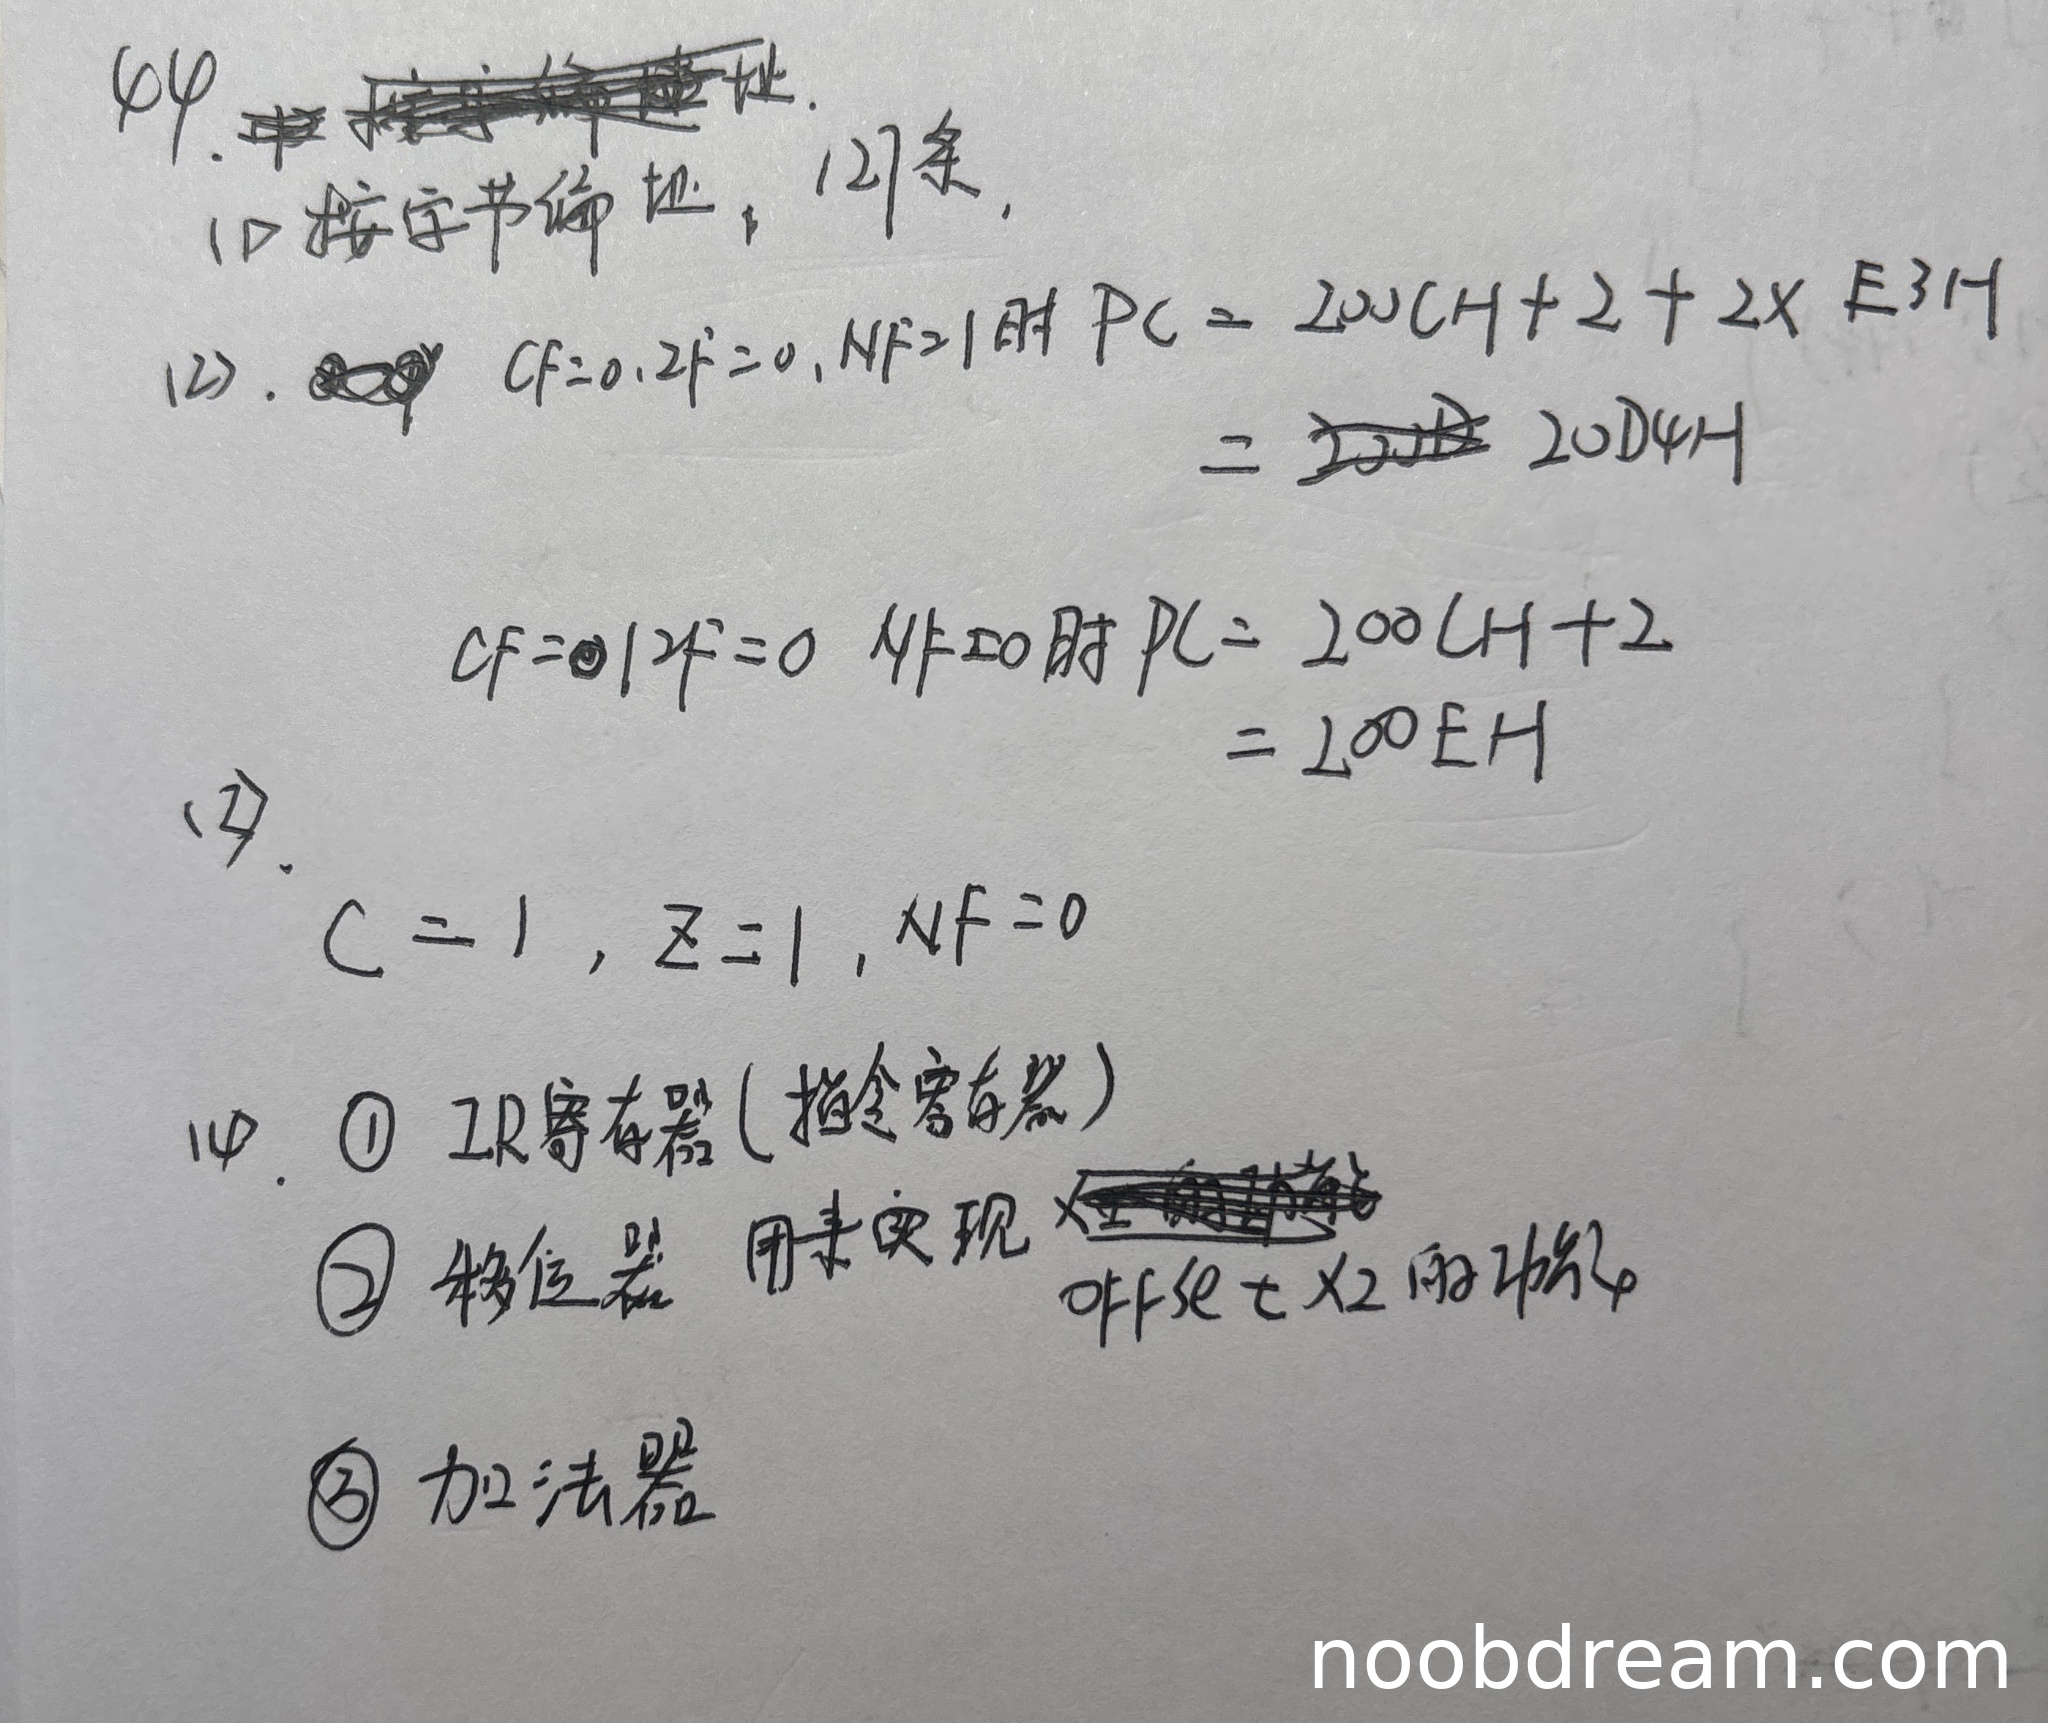 44.
址.
(1) 按字节编址, 127条.
(2). CF=0.ZF=0.NF=1时 PC = 200CH+2+2× E3H
= 20D4H
CF=0 ZF=0 NF=0时 PC= 200CH+2
= 200EH
(3).
C=1, Z=1, NF=0
(4. ① IR寄存器(指令寄存器)
② 移位器 用来实现
offset ×2 的功能
③ 加法器
noobdream.com